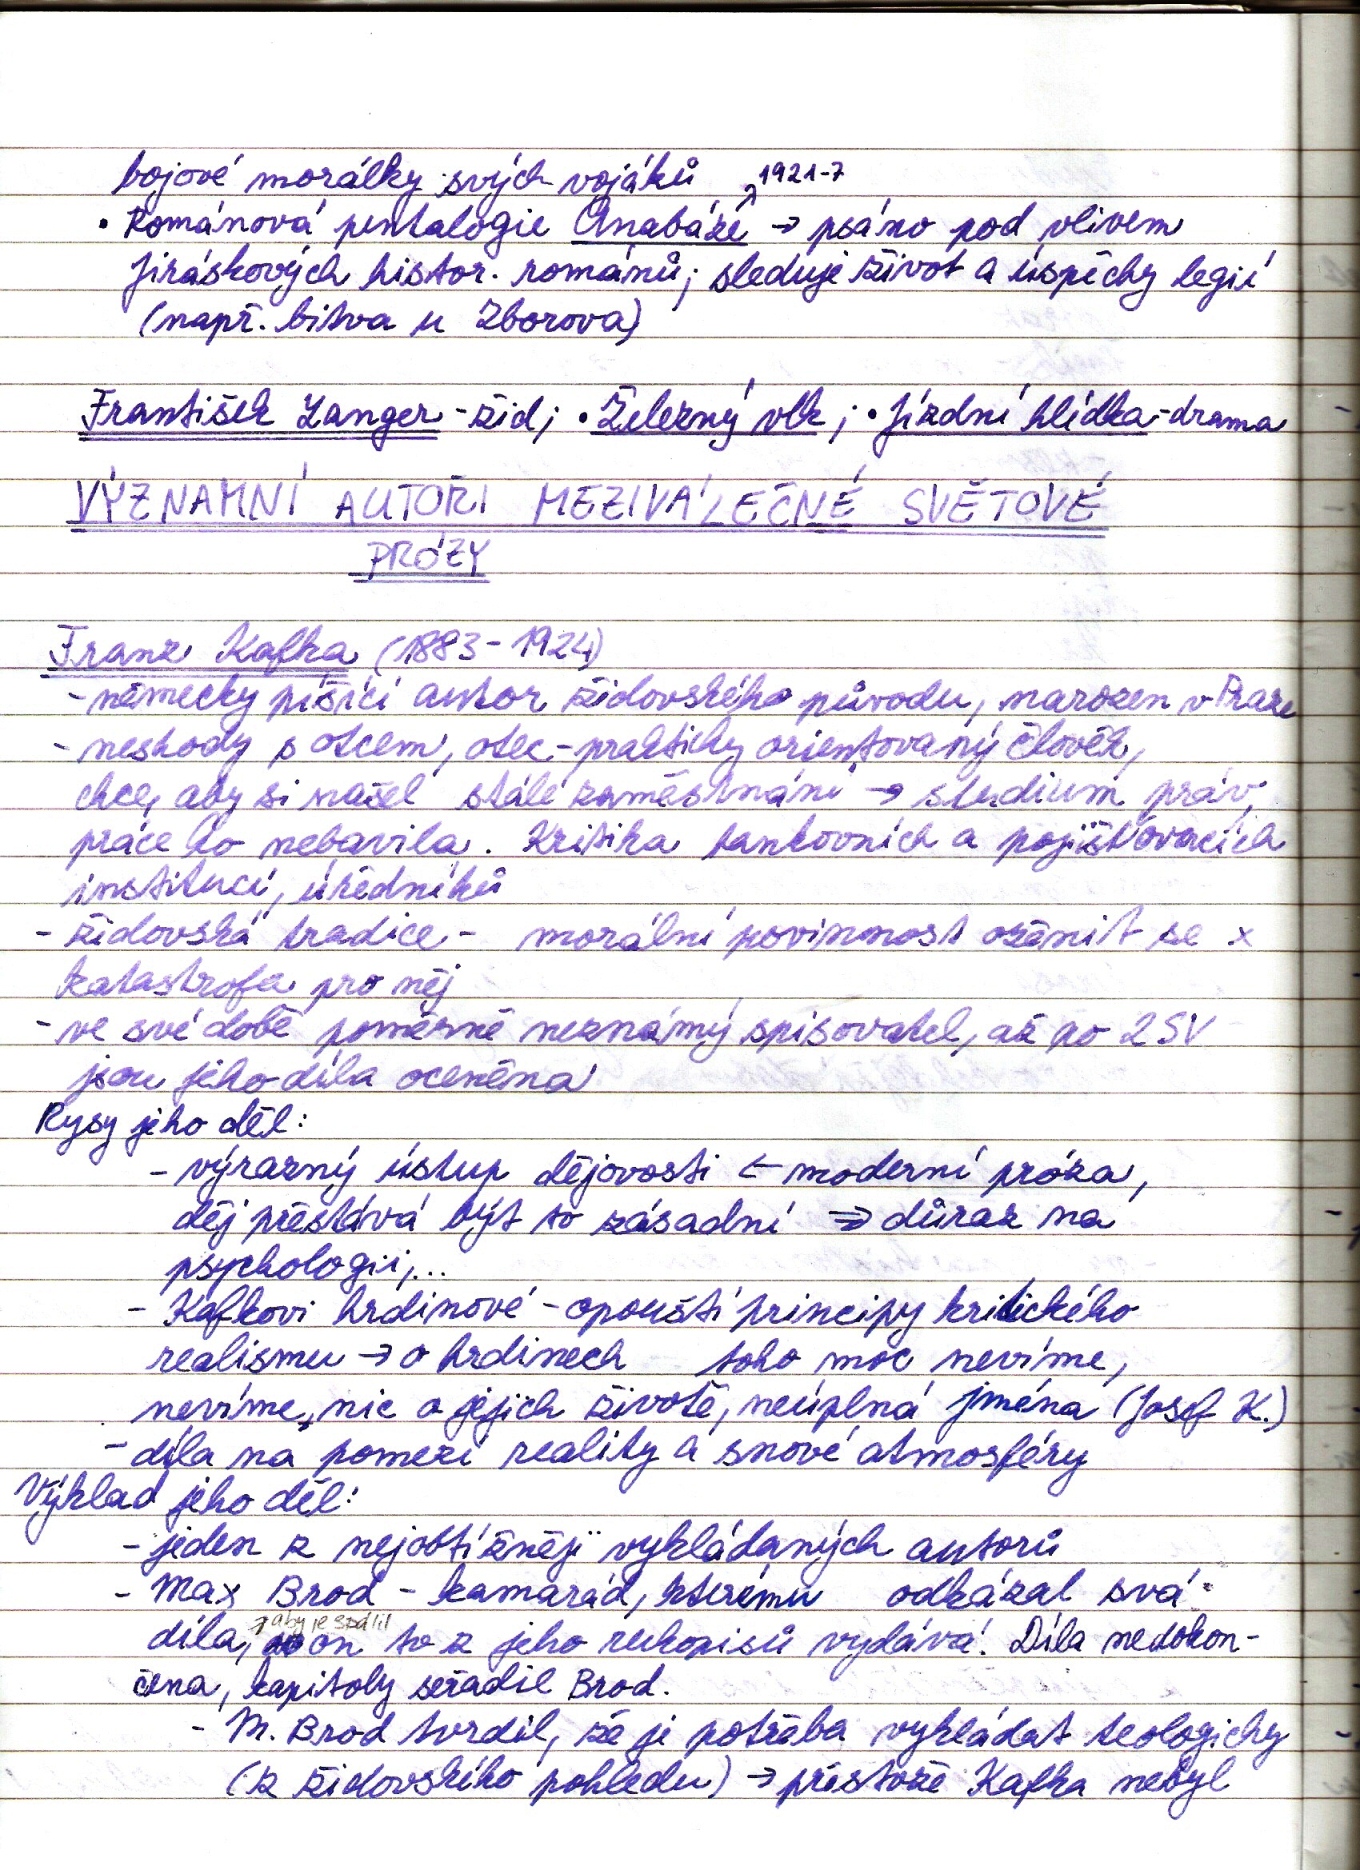 bojové morálky svých vojáků 1921-7
• Románová pentalogie Anabáze → psáno pod vlivem
Jiráskových histor. románů; sleduje život a úspěchy legií
(např. bitva u Zborova)
František Langer - žid; • Železný vlk; • Jízdní hlídka - drama
VÝZNAMNÍ AUTOŘI MEZIVÁLEČNÉ SVĚTOVÉ
PRÓZY
Franz Kafka (1883 - 1924)
- německy píšící autor židovského původu, narozen v Praze
- neshody s otcem, otec - prakticky orientovaný člověk,
chce, aby si našel stálé zaměstnání → studium práv,
práce ho nebavila. Kritika bankovních a pojišťovacích
institucí, úředníků
- židovská tradice - morální povinnost oženit se x
katastrofa pro něj
- ve své době poměrně neznámý spisovatel, až po 2SV
jsou jeho díla oceněna
Rysy jeho děl:
- výrazný ústup dějovosti ← moderní próza,
děj přestává být to zásadní ⇒ důraz na
psychologii,...
- Kafkovi hrdinové - opouští principy kritického
realismu → o hrdinech toho moc nevíme,
nevíme nic o jejich životě, neúplná jména (Josef K.)
- díla na pomezí reality a snové atmosféry
Výklad jeho děl:
- jeden z nejobtížněji vykládaných autorů
- Max Brod - kamarád, kterému odkázal svá
→ aby je spálil
díla, on to z jeho rukopisů vydává. Díla nedokon-
čena, kapitoly seřadil Brod.
- M. Brod tvrdil, že je potřeba vykládat teologicky
(z židovského pohledu) → přestože Kafka nebyl